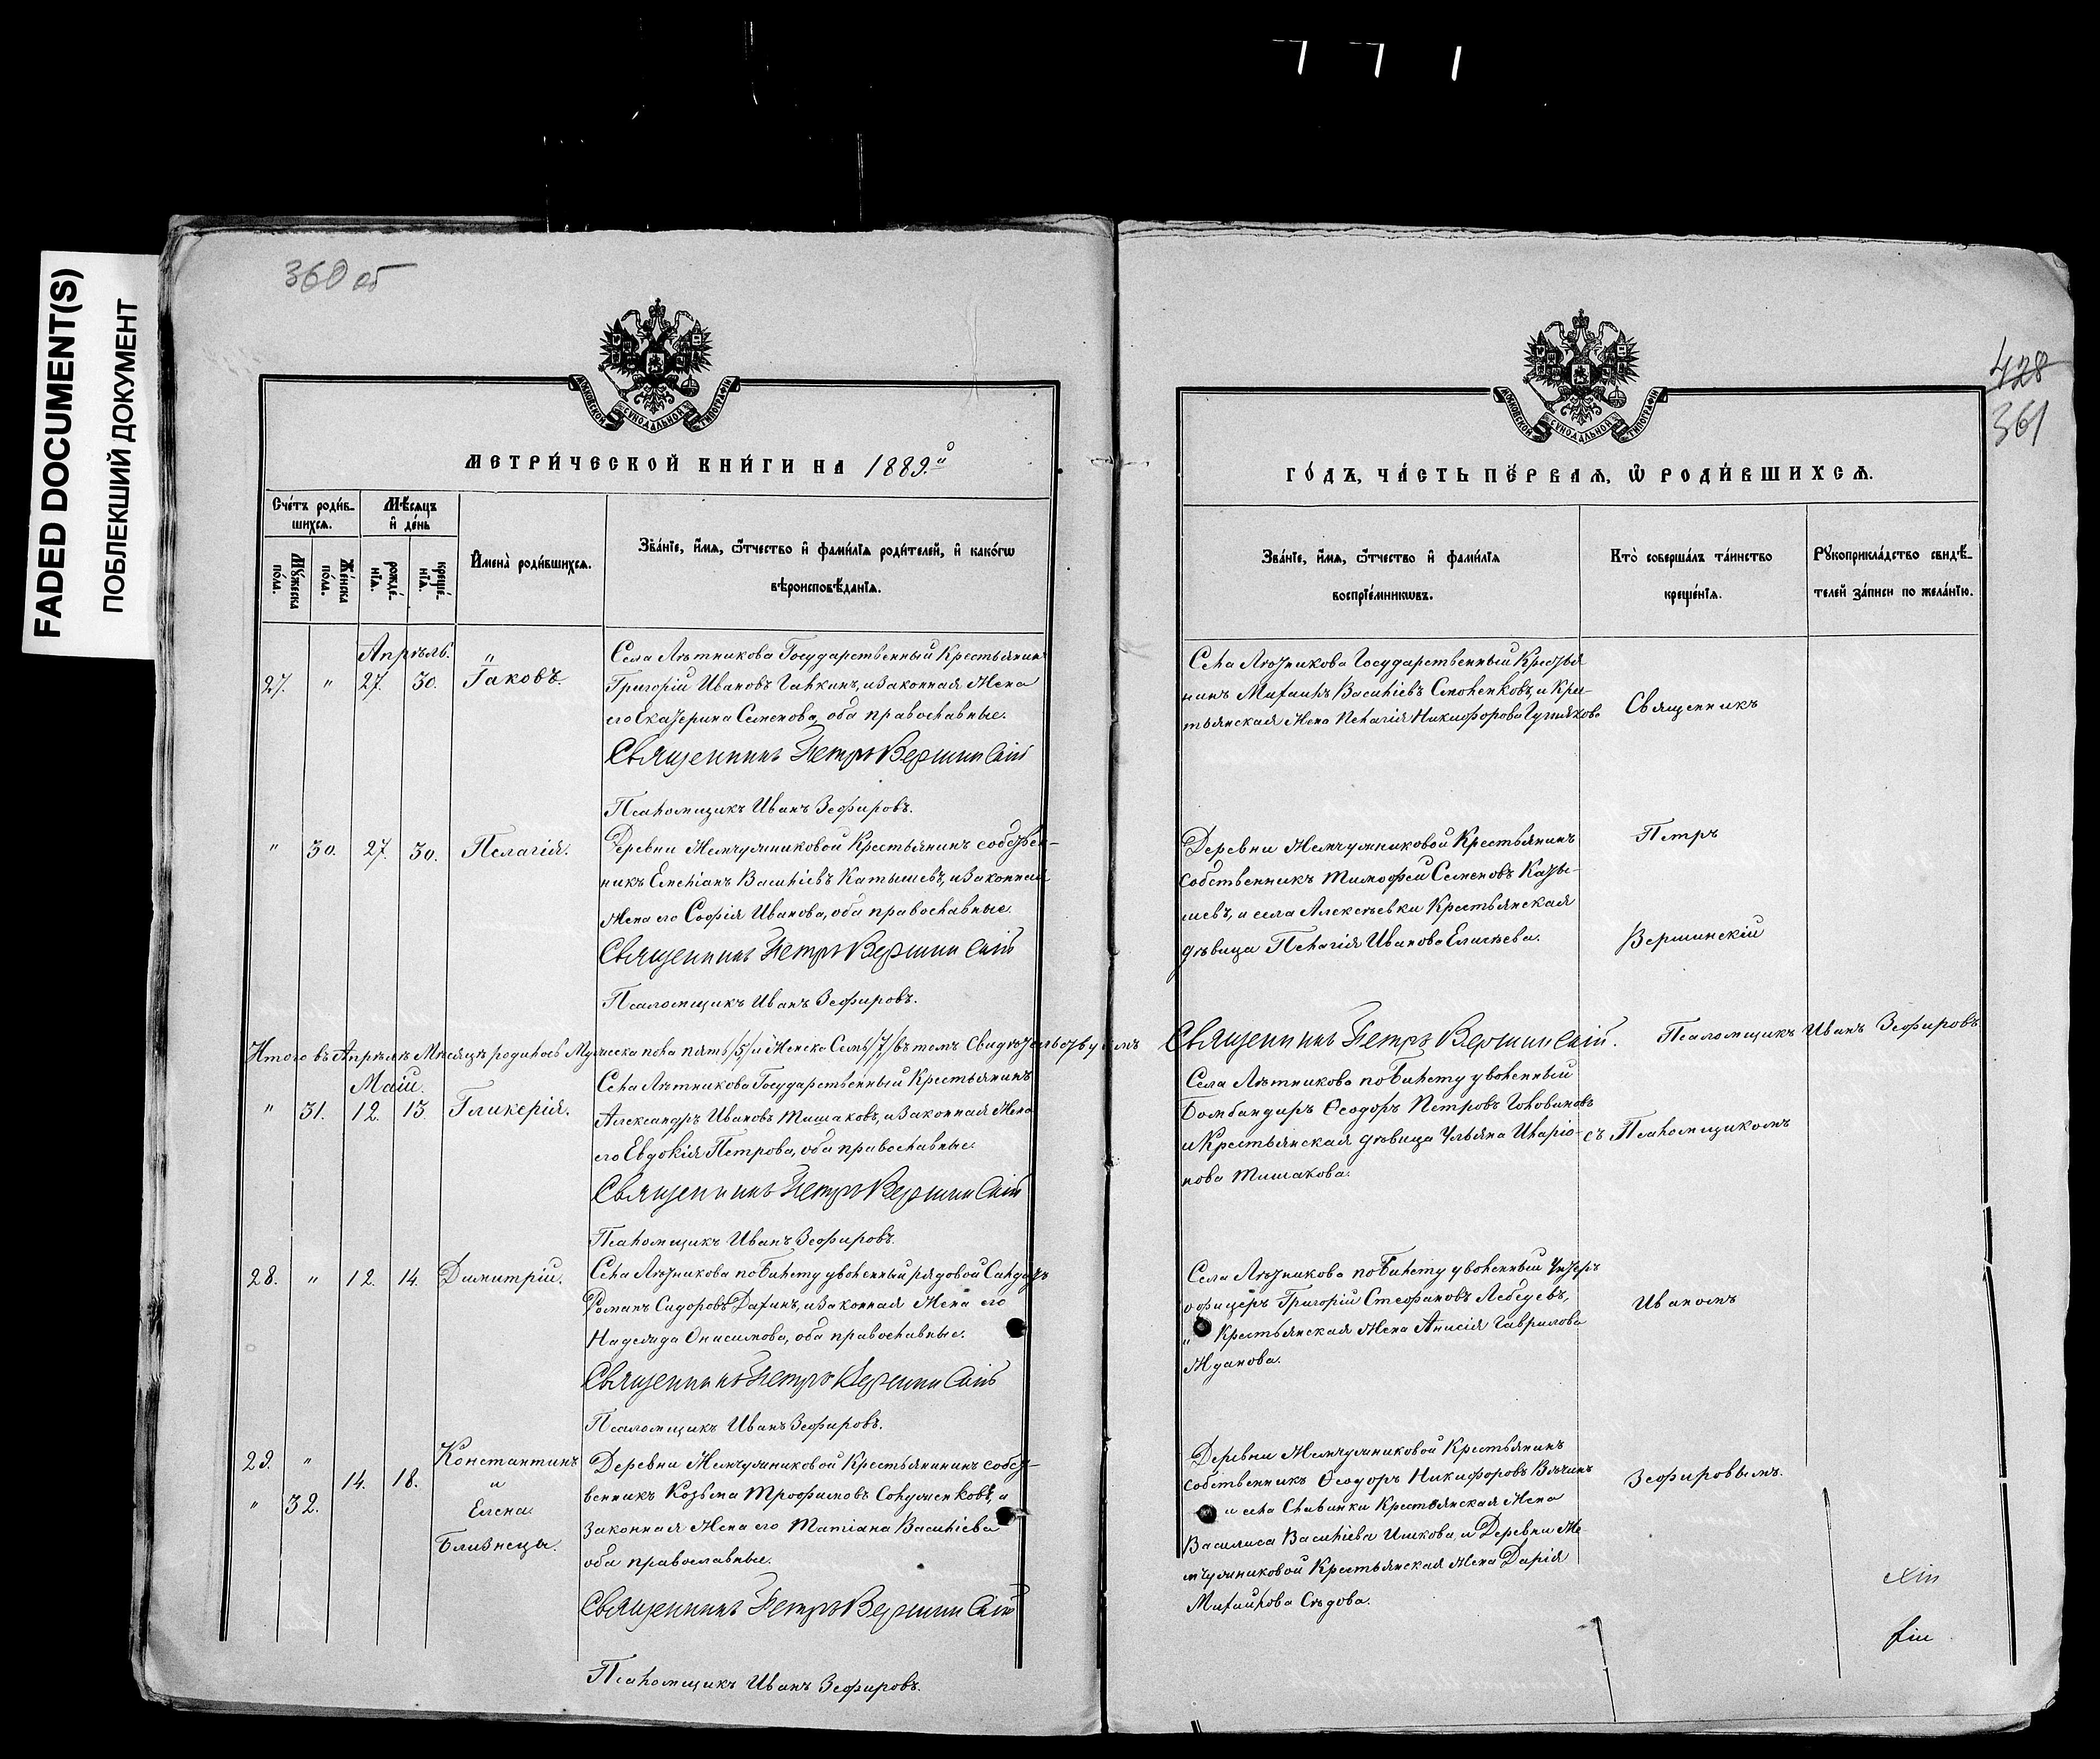 FADED DOCUMENT(S)
ПОБЛЕКШИЙ ДОКУМЕНТ
360 об
МОСКОВСКОЙ СУНОДАЛЬНОЙ ТИПОГРАФІИ
МЕТРИ́ЧЕСКОЙ КНИ́ГИ НА 1889.й
Сче́тъ роди́в-
шихся.
Мѣ́сяцъ
и҆ де́нь
Мꙋ́жеска по́ла.
Же́нска по́ла.
рожде́-
нїя.
креще́-
нїя.
И҆мена̀ роди́вшихся.
Зва́нїе, и҆́мя, ѻ҆́тчество и҆ фами́лїя роди́телей, и҆ како́гѡ
вѣроисповѣ́данїя.
Апрѣль.
27. " 27. 30. Іаковъ.
Села Лѣтникова Государственный Крестьянинъ
Григорій Ивановъ Галкинъ, и законная Жена
его Екатерина Семенова, оба православные.
Священникъ Петръ Вершинскій
Псаломщикъ Иванъ Зефировъ.
" 30. 27. 30. Пелагія.
Деревни Жемчужниковой Крестьянинъ собствен-
никъ Емеліанъ Василіевъ Катышевъ, и законная
Жена его Софія Иванова, оба православные.
Священникъ Петръ Вершинскій
Псаломщикъ Иванъ Зефировъ.
Итого въ Апрѣлѣ Мѣсяцѣ родилось Мужеска пола пять /5/ и Женска Семь /7/ въ томъ Свидѣтельствуемъ
Маій.
" 31. 12. 13. Гликерія.
Села Лѣтникова Государственный Крестьянинъ
Александръ Ивановъ Тишаковъ, и законная Жена
его Евдокія Петрова, оба православные.
Священникъ Петръ Вершинскій
Псаломщикъ Иванъ Зефировъ.
28. " 12. 14. Димитрій.
Села Лѣтникова по билету уволенный рядовой Солдатъ
Романъ Сидоровъ Дагинъ, и законная Жена его
Надежда Онисимова, оба православные.
Священникъ Петръ Вершинскій
Псаломщикъ Иванъ Зефировъ.
29. " 14. 18. Константинъ
и
" 32. Елена
Близнецы.
Деревни Жемчужниковой Крестьянининъ собст-
венникъ Козьма Трофимовъ Солуменковъ, и
законная Жена его Татіана Василіева
оба православные.
Священникъ Петръ Вершинскій
Псаломщикъ Иванъ Зефировъ.
428
361
МОСКОВСКОЙ СУНОДАЛЬНОЙ ТИПОГРАФІИ
ГО́ДЪ, ЧА́СТЬ ПЕ́РВАЯ, Ѡ҆ РОДИ́ВШИХСЯ.
Зва́нїе, и҆́мя, ѻ҆́тчество и҆ фами́лїя
воспрїе́мникѡвъ.
Кто̀ соверша́лъ та́инство
креще́нїя.
Рꙋкоприкла́дство свидѣ́-
телей за́писи по жела́нїю.
Села Лѣтникова Государственный Крестья
нинъ Михаилъ Василіевъ Смоленковъ, и Крес-
тьянская Жена Пелагія Никифорова
Священникъ
Деревни Жемчужниковой Крестьянинъ
Собственникъ Тимофей Семеновъ Каты-
шевъ, и села Алексѣевки Крестьянская
дѣвица Пелагія Иванова Елисѣева.
Петръ
Вершинскій
Священникъ Петръ Вершинскій. Псаломщикъ Иванъ Зефировъ
Села Лѣтникова по билету уволенный
Бомбандиръ Ѳеодоръ Петровъ Головановъ
и Крестьянская дѣвица Ульяна Иларіо-
нова Тишакова.
съ Псаломщикомъ
Села Лѣтникова по билету уволенный Унтеръ
офицеръ Григорій Стефановъ Лебедевъ,
" Крестьянская Жена Анисія Гаврилова
Жданова.
Иваномъ
Деревни Жемчужниковой Крестьянинъ
Собственникъ Ѳеодоръ Никифоровъ
и села Славинки Крестьянская Жена
Василиса Василіева Ишкова, и Деревни Же
мчужниковой Крестьянская Жена Дарія
Михайлова Сѣдова.
Зефировымъ.